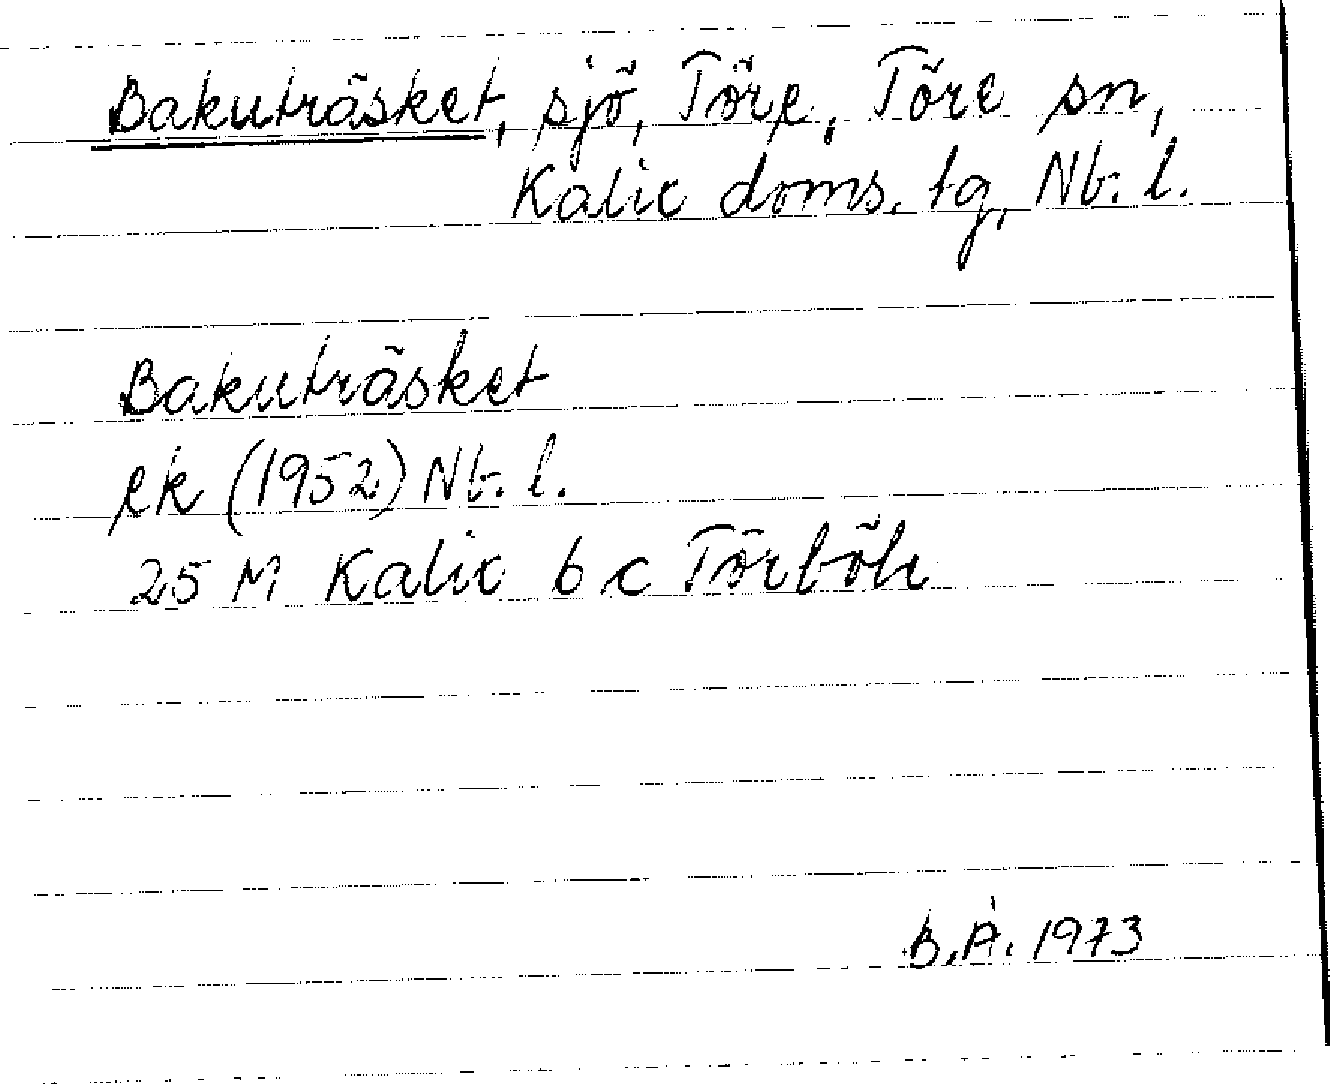 Bakuträsket, sjö, Töre, Töre sn,
Kalix doms. tg, Nb. l.
Bakuträsket
ek (1952) Nb. l.
25 M Kalix 6 c Törböle
B.Å. 1973